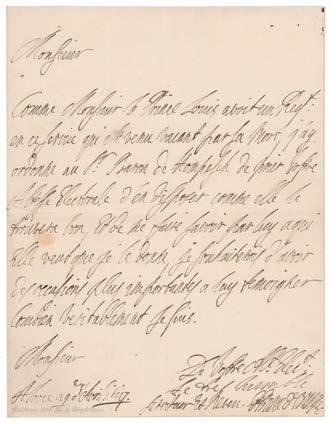 Monsieur
Comme Monsieur le Prince Louis avoit un Regt.
en ce service qui est venu vacant par sa Mort, j'ay
ordonné au Sr. Baron de Hompesch de prier Vostre
Altesse Electorale d'en disposer comme elle le
trouvera bon, et de me faire savoir par luy a qui
Elle veut que je le donne, je souhaiterois d'avoir
des occasions plus importantes a luy temoigner
combien veritablement je suis.
Monsieur
De Vostre Alt. Elect.
Le tres humble
serviteur et